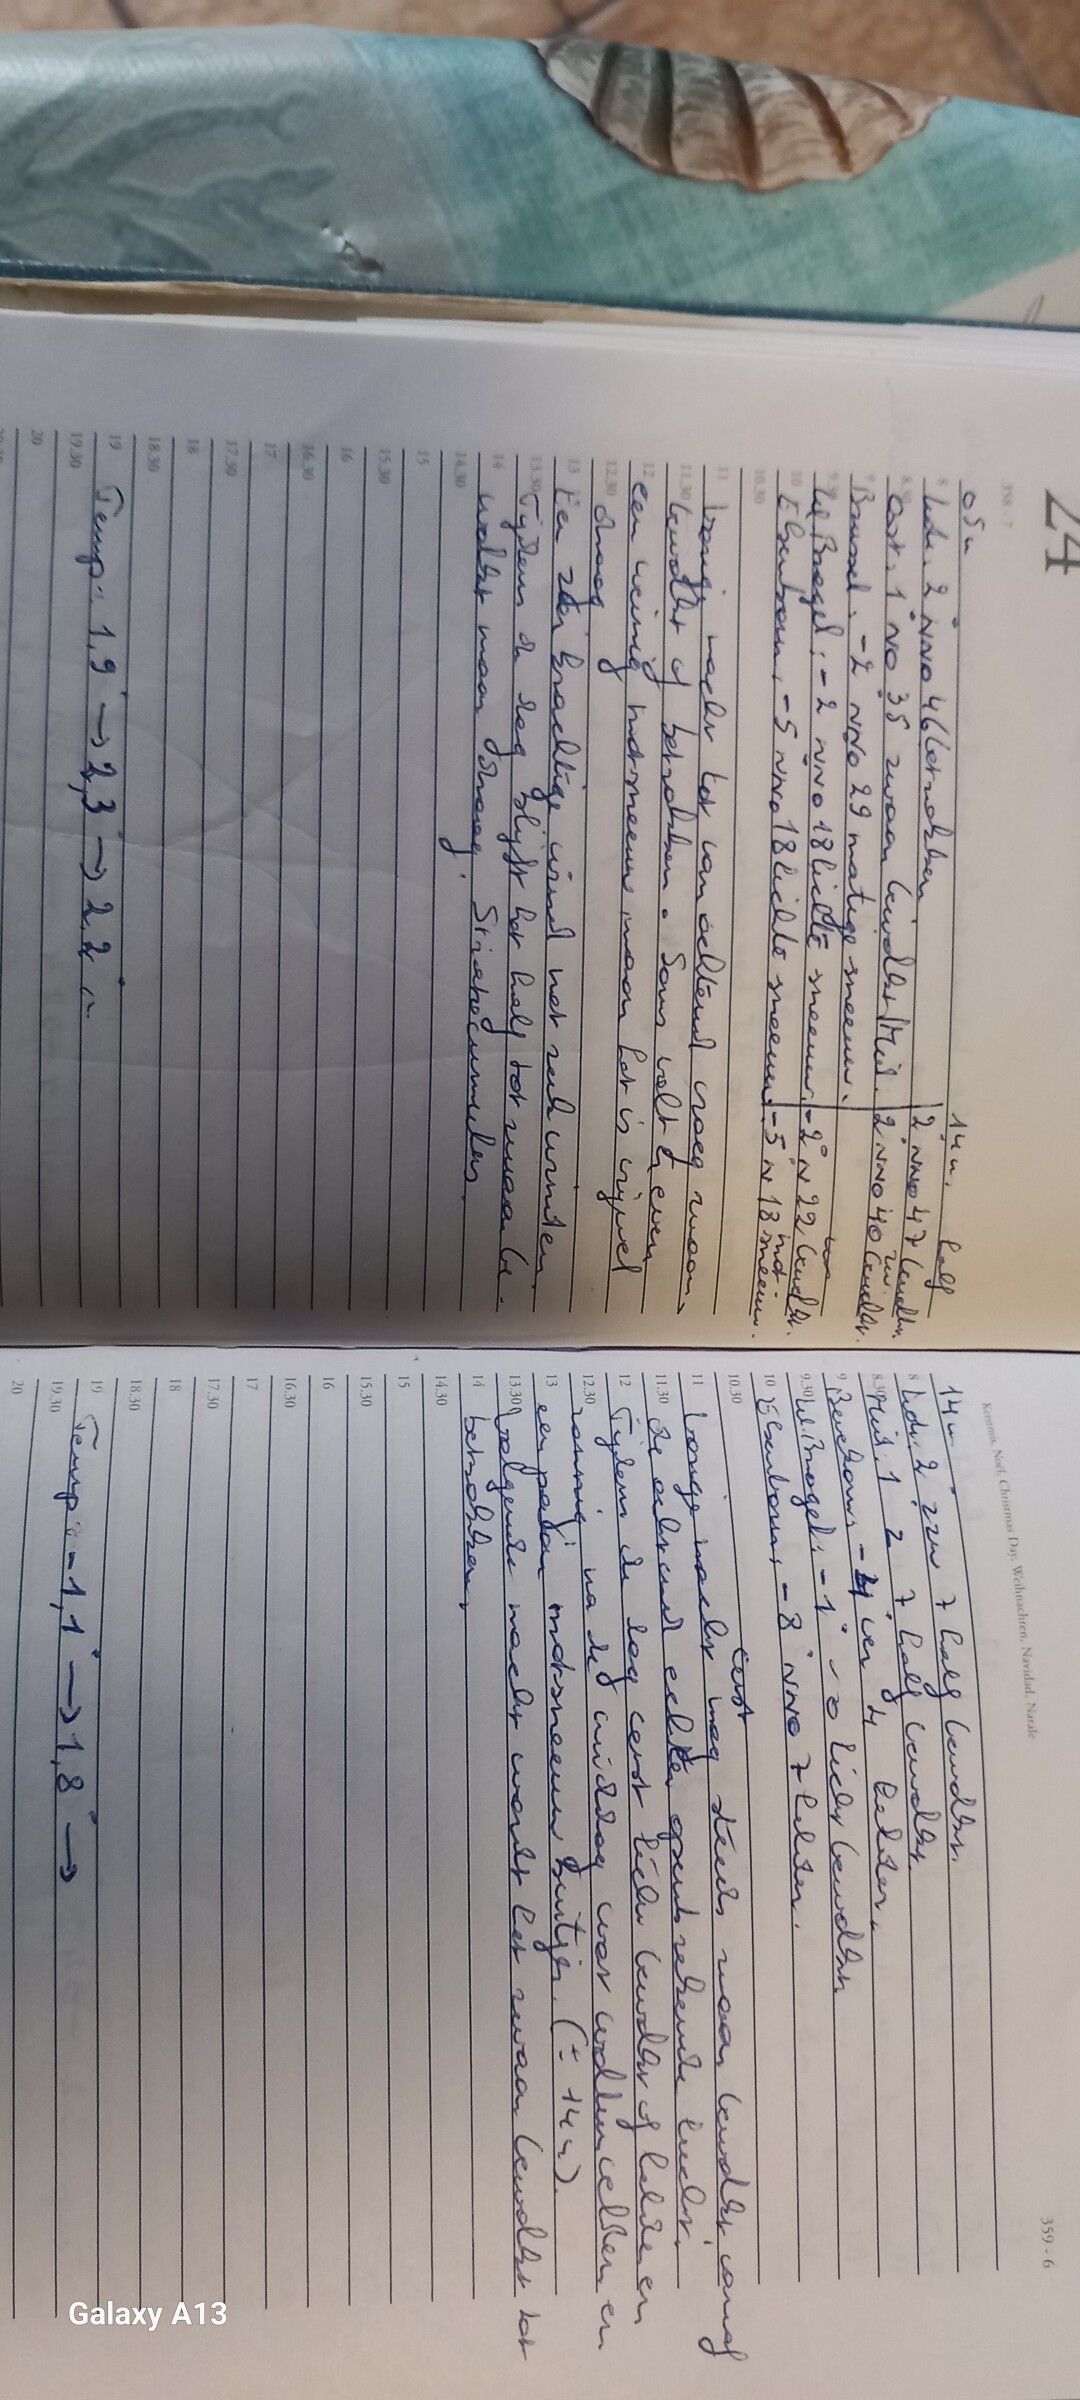 24
358 - 7
05u 14u.
8 2 NNO 46 betrokken 2° NNO 47 half bewolkt.
8.30 Oost. 1 NO 35 zwaar bewolkt Mid. 2 NNO 40 zw. bewolkt.
9 -2 NNO 29 matige sneeuw.
9.30 -2 NNO 18 lichte sneeuw. -2° N 22 bewolkt.
10 Elsenborn. -5 NNO 18 lichte sneeuw. -5 N 18 mot-sneeuw.
10.30
11 Vorige nacht tot vanochtend vroeg zwaar
11.30 bewolkt of betrokken. Soms valt er even
12 een weinig motsneeuw maar het is vrijwel
12.30 droog
13 Een zeer krachtige wind met
13.30 Tijdens de dag blijft het half tot zwaar be-
14 wolkt maar droog. Stratocumulus.
14.30
15
15.30
16
16.30
17
17.30
18
18.30
19 Temp: 1,9° → 2,3° → 2,2°
19.30
20
Kerstmis, Noël, Christmas Day, Weihnachten, Navidad, Natale
359 - 6
14u
8 2 ZZW 7 half bewolkt.
8.30 Mid. 1 Z 7 half bewolkt
9 ver 4 helder.
9.30 -1° - 0 licht bewolkt
10 Elsenborn, -8° NNO 7 helder.
10.30 eerst
11 Vorige nacht nog steeds zwaar bewolkt vanaf
11.30 de ochtend echter opentrekkende lucht.
12 Tijdens de dag eerst licht bewolkt of helder en
12.30 zonnig na de middag wat wolkenvelden en
13 een paar motsneeuw buitjes. (± 14u).
13.30 Volgende nacht wordt het zwaar bewolkt tot
14 betrokken.
14.30
15
15.30
16
16.30
17
17.30
18
18.30
19 Temp: -1,1° → 1,8° →
19.30
20
Galaxy A13